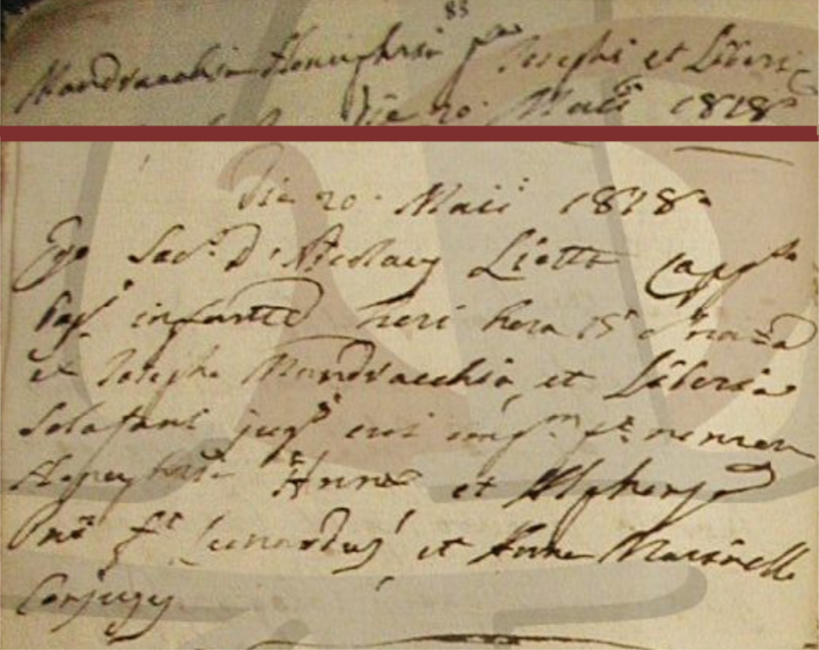 83
Mandracchia Honuphria f. Josephi et Liberi
Die 20 Maii 1818
Die 20 Maii 1818
Ego Sac. D. Nicolaus Liotta Capp.
bap. infantem heri hora 15 nata
ex Joseph Mandracchia et Liberia
Sclafani jug. cui imp. f. nomen
Anna et Alphens
f. Leonardus et Anna Marinello
Conjuges